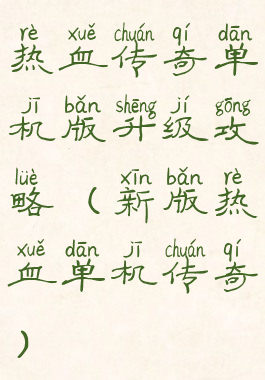 rè xuě chuán qí dān
热血传奇单
jī bǎn shēng jí gōng
机版升级攻
lüè xīn bǎn rè
略（新版热
xuě dān jī chuán qí
血单机传奇
）